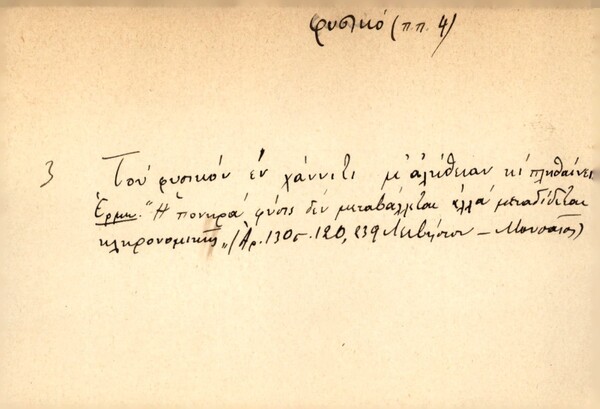 φυσικό (π.π. 4)
3 Τού φυσικόν έν χάννιτι μ' αλήθειαν κί πληθαίνει
Έρμη. "Η πονηρά φύσις δέν μεταβάλλεται αλλά μεταδίδεται
κληρονομικώς" (Αρ. 130 σ. 120, 239 Λεσβήσιον – Μουσαίος)